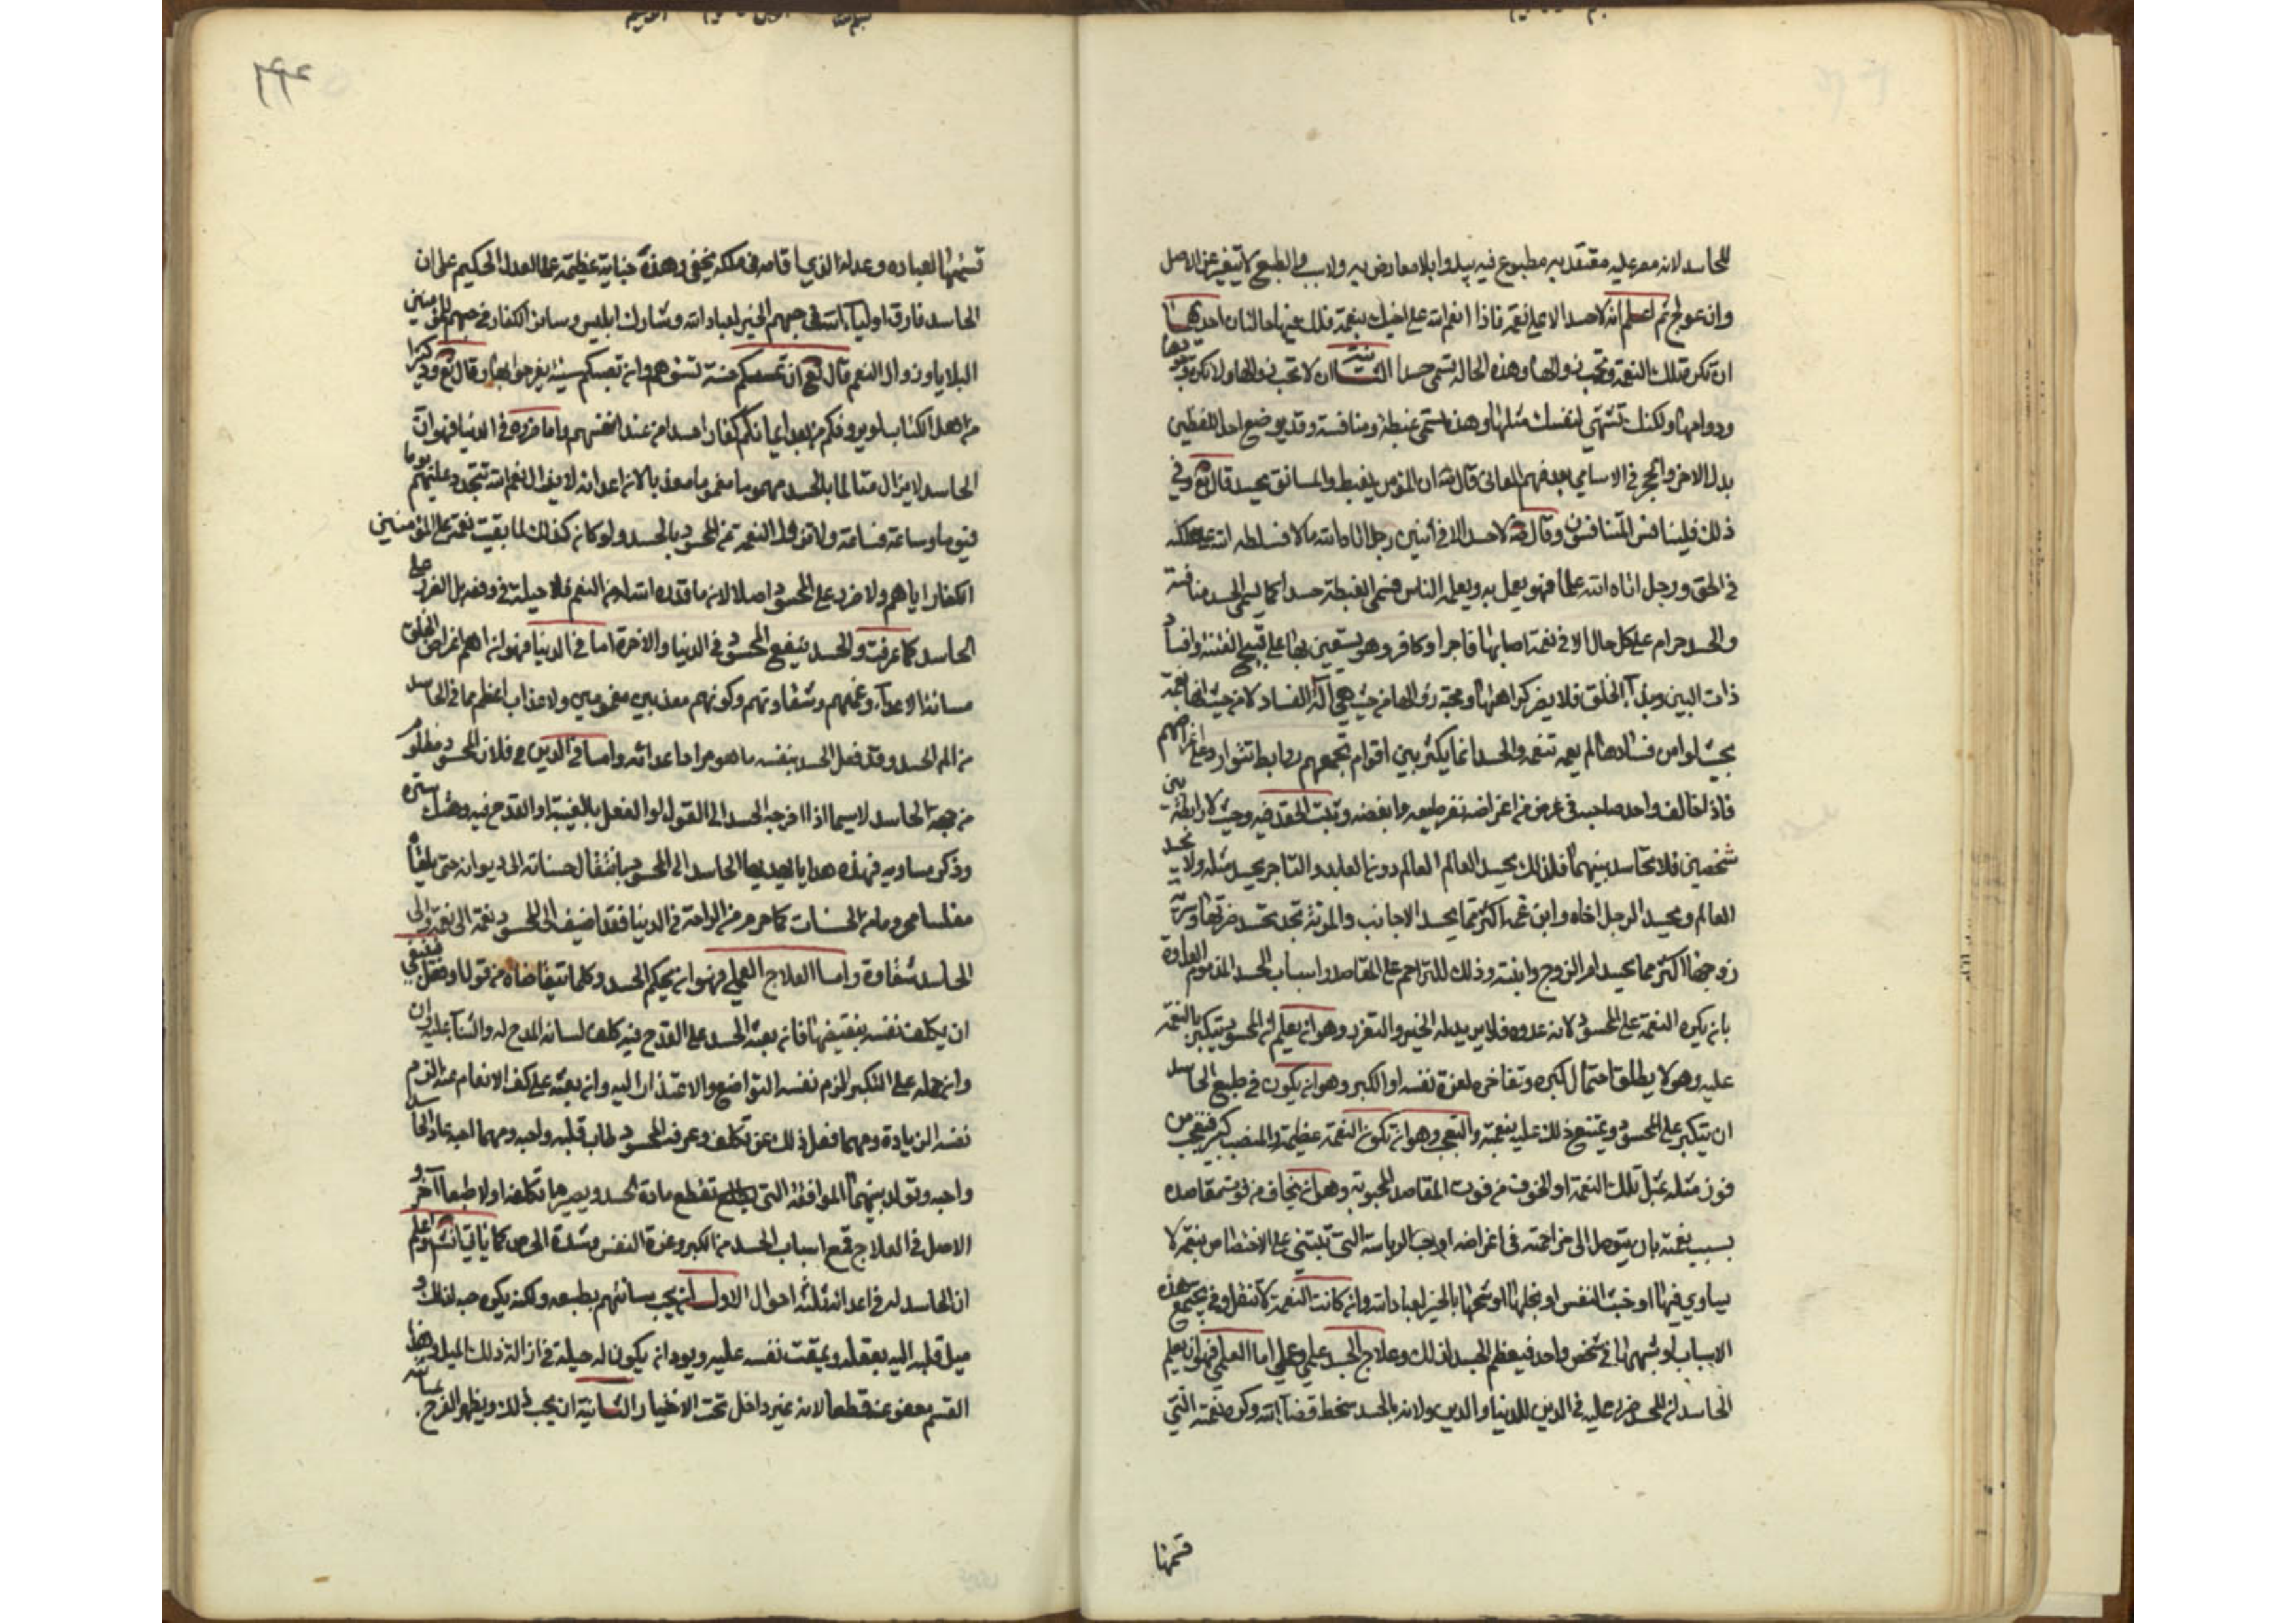 للحاسد لانه مصر عليه معتقد به مطبوع فيه يبدوا بلا معارض به ولا سبب والطبع لا يتغير عن الاصل
وان عولج ثم اعلم انه لا حسد الا على نعمة فاذا انعم الله على اخيك بنعمة فلك فيها حالتان احديهما
ان تكره تلك النعمة وتحب زوالها وهذه الحالة تسمى حسدا الثانية ان لا تحب زوالها ولا تكره وجودها
ودوامها ولكنك تشتهي لنفسك مثلها وهذه تسمى غبطة ومنافسة وقد يوضع احد اللفظين
بدل الاخر ولا حجر في الاسامي بعد فهم المعاني قال ان المؤمن يغبط والمنافق يحسد قال تع وفي
ذلك فليتنافس المتنافسون وقال لا حسد الا في اثنين رجل اتاه الله مالا فسلطه الله على هلكته
في الحق ورجل اتاه الله علما فهو يعمل به ويعلمه الناس فسمى الغبطة حسدا كما يسمى الحسد منافسة
والحسد حرام على كل حال الا في نعمة اصابها فاجر او كافر وهو يستعين بها على تهييج الفتنة وافساد
ذات البين وايذاء الخلق فلا يضر كراهتها ومحبة زوالها من حيث هي آلة الفساد لا من حيث انها نعمة
بحيث لو امن فسادها لم يغمه تنعمه والحسد انما يكثر بين اقوام تجمعهم روابط تتوارد على اغراضهم
فاذا خالف واحد صاحبه في غرض من اغراضه نفر طبعه وابغضه وثبت الحقد فيه وحيث لا رابطة بين
شخصين فلا تحاسد بينهما فلذلك يحسد العالم العالم دون العابد والتاجر يحسد مثله ولا يحسد
العالم ويحسد الرجل اخاه وابن عمه اكثر مما يحسد الاجانب والمرئة تجد تحسد ضرتها وسرية
زوجها اكثر مما يحسد ام الزوج وابنته وذلك للتزاحم على المقاصد واسباب الحسد المذموم العداوة
بان يكره النعمة على المحسود لانه عدوه فلا يريد له الخير والتعزز وهو ان يعلم ان المحسود يتكبر بالنعمة
عليه وهو لا يطيق احتمال كبره وتفاخره لعزة نفسه او الكبر وهو ان يكون في طبع الحاسد
ان يتكبر على المحسود ويمتنع ذلك عليه بنعمته والتعجب وهو ان تكون النعمة عظيمة والمنصب كبير فتعجب من
فوز مثله بمثل تلك النعمة او الخوف من فوت المقاصد المحبوبة وهو ان يخاف من فوت مقاصده
بسبب نعمته بان يتوصل الى مزاحمته في اغراضه او حب الرياسة التي تبتني على الاختصاص بنعمة لا
يساوي فيها او خبث النفس او بخلها او شحها بالخير لعباد الله وان كانت النعمة لا تنقل وقد يجتمع هذه
الاسباب او بعضها في شخص واحد فيعظم الحسد لذلك وعلاج الحسد علمي وعملي اما العلمي فهو ان يعلم
الحاسد ان للحسد ضرر عليه في الدين للدنيا والدين ولانه بالحسد سخط قضاء الله وكره نعمته التي
قسمها
قسمها لعباده وعدله الذي اقامه في ملكه بخفي وهذه جناية عظيمة على العدل الحكيم على ان
الحاسد فارق اولياء الله في حبهم الخير لعباد الله وشارك ابليس وسائر الكفار في حبهم للمؤمنين
البلايا وزوال النعم قال تع ان تمسسكم حسنة تسؤهم وان تصبكم سيئة يفرحوا بها وقال تع ود كثيرا
من اهل الكتاب لو يردونكم من بعد ايمانكم كفارا حسدا من عند انفسهم واما ضرره في الدنيا فهو ان
الحاسد لا يزال متالما بالحسد مهموما مغموما معذبا لان اعدائه لا يزال نعم الله تتجدد عليهم يوما
فيوما وساعة فساعة ولا تزول النعمة عن المحسود بالحسد ولو كان كذلك لما بقيت نعمة على المؤمنين
الكفار اياهم ولا ضرر على المحسود اصلا لان ما قدره الله له من النعم فلا حيلة في دفعه بل الضرر على
الحاسد كما عرفت والحسد ينفع المحسود في الدنيا والاخرة اما في الدنيا فهو ان اهم اغراض الخلق
مسائة الاعداء وغمهم وشقاوتهم وكونهم معذبين مغمومين ولا عذاب اعظم مما في الحاسد
من الم الحسد وقد فعل الحسد بنفسه ما هو مراد اعدائه واما في الدين فلان المحسود مظلوم
من جهة الحاسد لا سيما اذا اخرجه الحسد الى القول والفعل بالغيبة او القدح فيه وهتك ستره
وذكر مساويه فهذه هدايا يهديها الحاسد الى المحسود بانتقال حسناته الى ديوانه حتى يلقاه
مفلسا محروما من الحسنات كما حرم من الراحة في الدنيا فقد اضيف الى المحسود نعمة الى نعمة والى
الحاسد شقاوة واما العلاج العملي فهو ان يحكم الحسد وكلما يتقاضاه من قول او فعل فينبغي
ان يكلف نفسه بنقيضها فان بعثه الحسد على القدح فيه كلف لسانه المدح له والثناء عليه
وان حمله على التكبر الزم نفسه التواضع والاعتذار اليه وان بعثه على كف الانعام عنه الزم
نفسه الزيادة ومهما فعل ذلك عن تكلف وعرف المحسود طاب قلبه واحبه ومهما احبه عاد الحاسد
واحبه وتولد بينهما الموافقة التي تقطع مادة الحسد ويصير ما تكلفه اولا طبعا آخرا و
الاصل في العلاج قمع اسباب الحسد من الكبر وعزة النفس وشدة الحرص كما ياتي انش واعلم
ان الحاسد له في اعدائه ثلثة احوال الاول ان يحب مسائتهم بطبعه ولكنه يكره حبه لذلك و
ميل قلبه اليه بعقله ويمقت نفسه عليه ويود ان يكون له حيلة في ازالة ذلك الميل فهذا
القسم معفو عنه قطعا لانه غير داخل تحت الاختيار الثانية ان يحب ذلك ويظهر الفرح